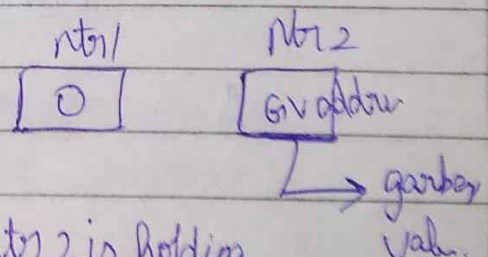 ptr1 ptr2
0 GV addr
garbage
ptr 2 is holding value.